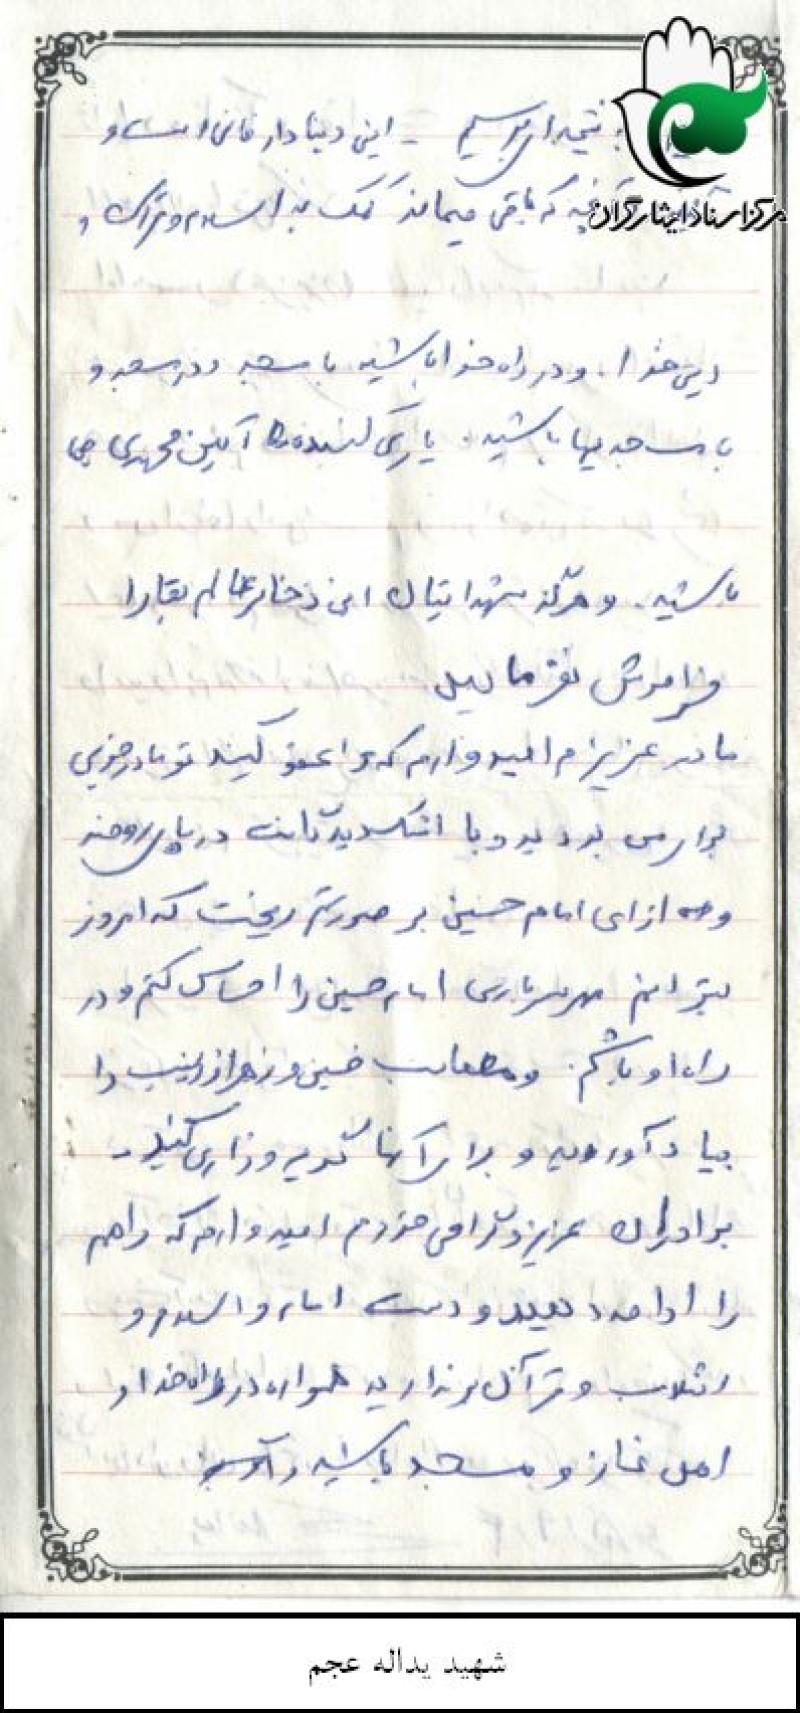 به نتیجه ای برسیم - این دنیا دار فانی است و
که باقی میماند کمک به اسلام و قرآن و
مرکز اسناد ایثارگران
دین خدا. و در راه خدا باشید با مسجد و در مسجد و
با مسجدیها باشید. یاری کننده آئین محمدی می
باشید. و هرگز شهدایتان این ذخائر عالم بقا را
فراموش نفرمائید
مادر عزیزم امیدوارم که مرا عفو کنید تو مادر خوبی
برای من بودید و با اشک دیدگانت در پای روضه
و از امام حسین بر صورتم ریخت که امروز
بتوانم امام حسین را احساس کنم و در
راه او باشم. و مصائب حسین و زهرا و زینب را
بیاد آورید و برای آنها گریه و زاری کنید -
برادران عزیز و گرامی خودم امیدوارم که راهم
را ادامه دهید و دست امام و اسلام و
انقلاب و قرآن برندارید همواره در راه خدا و
اهل نماز و مسجد باشید
شهید یداله عجم